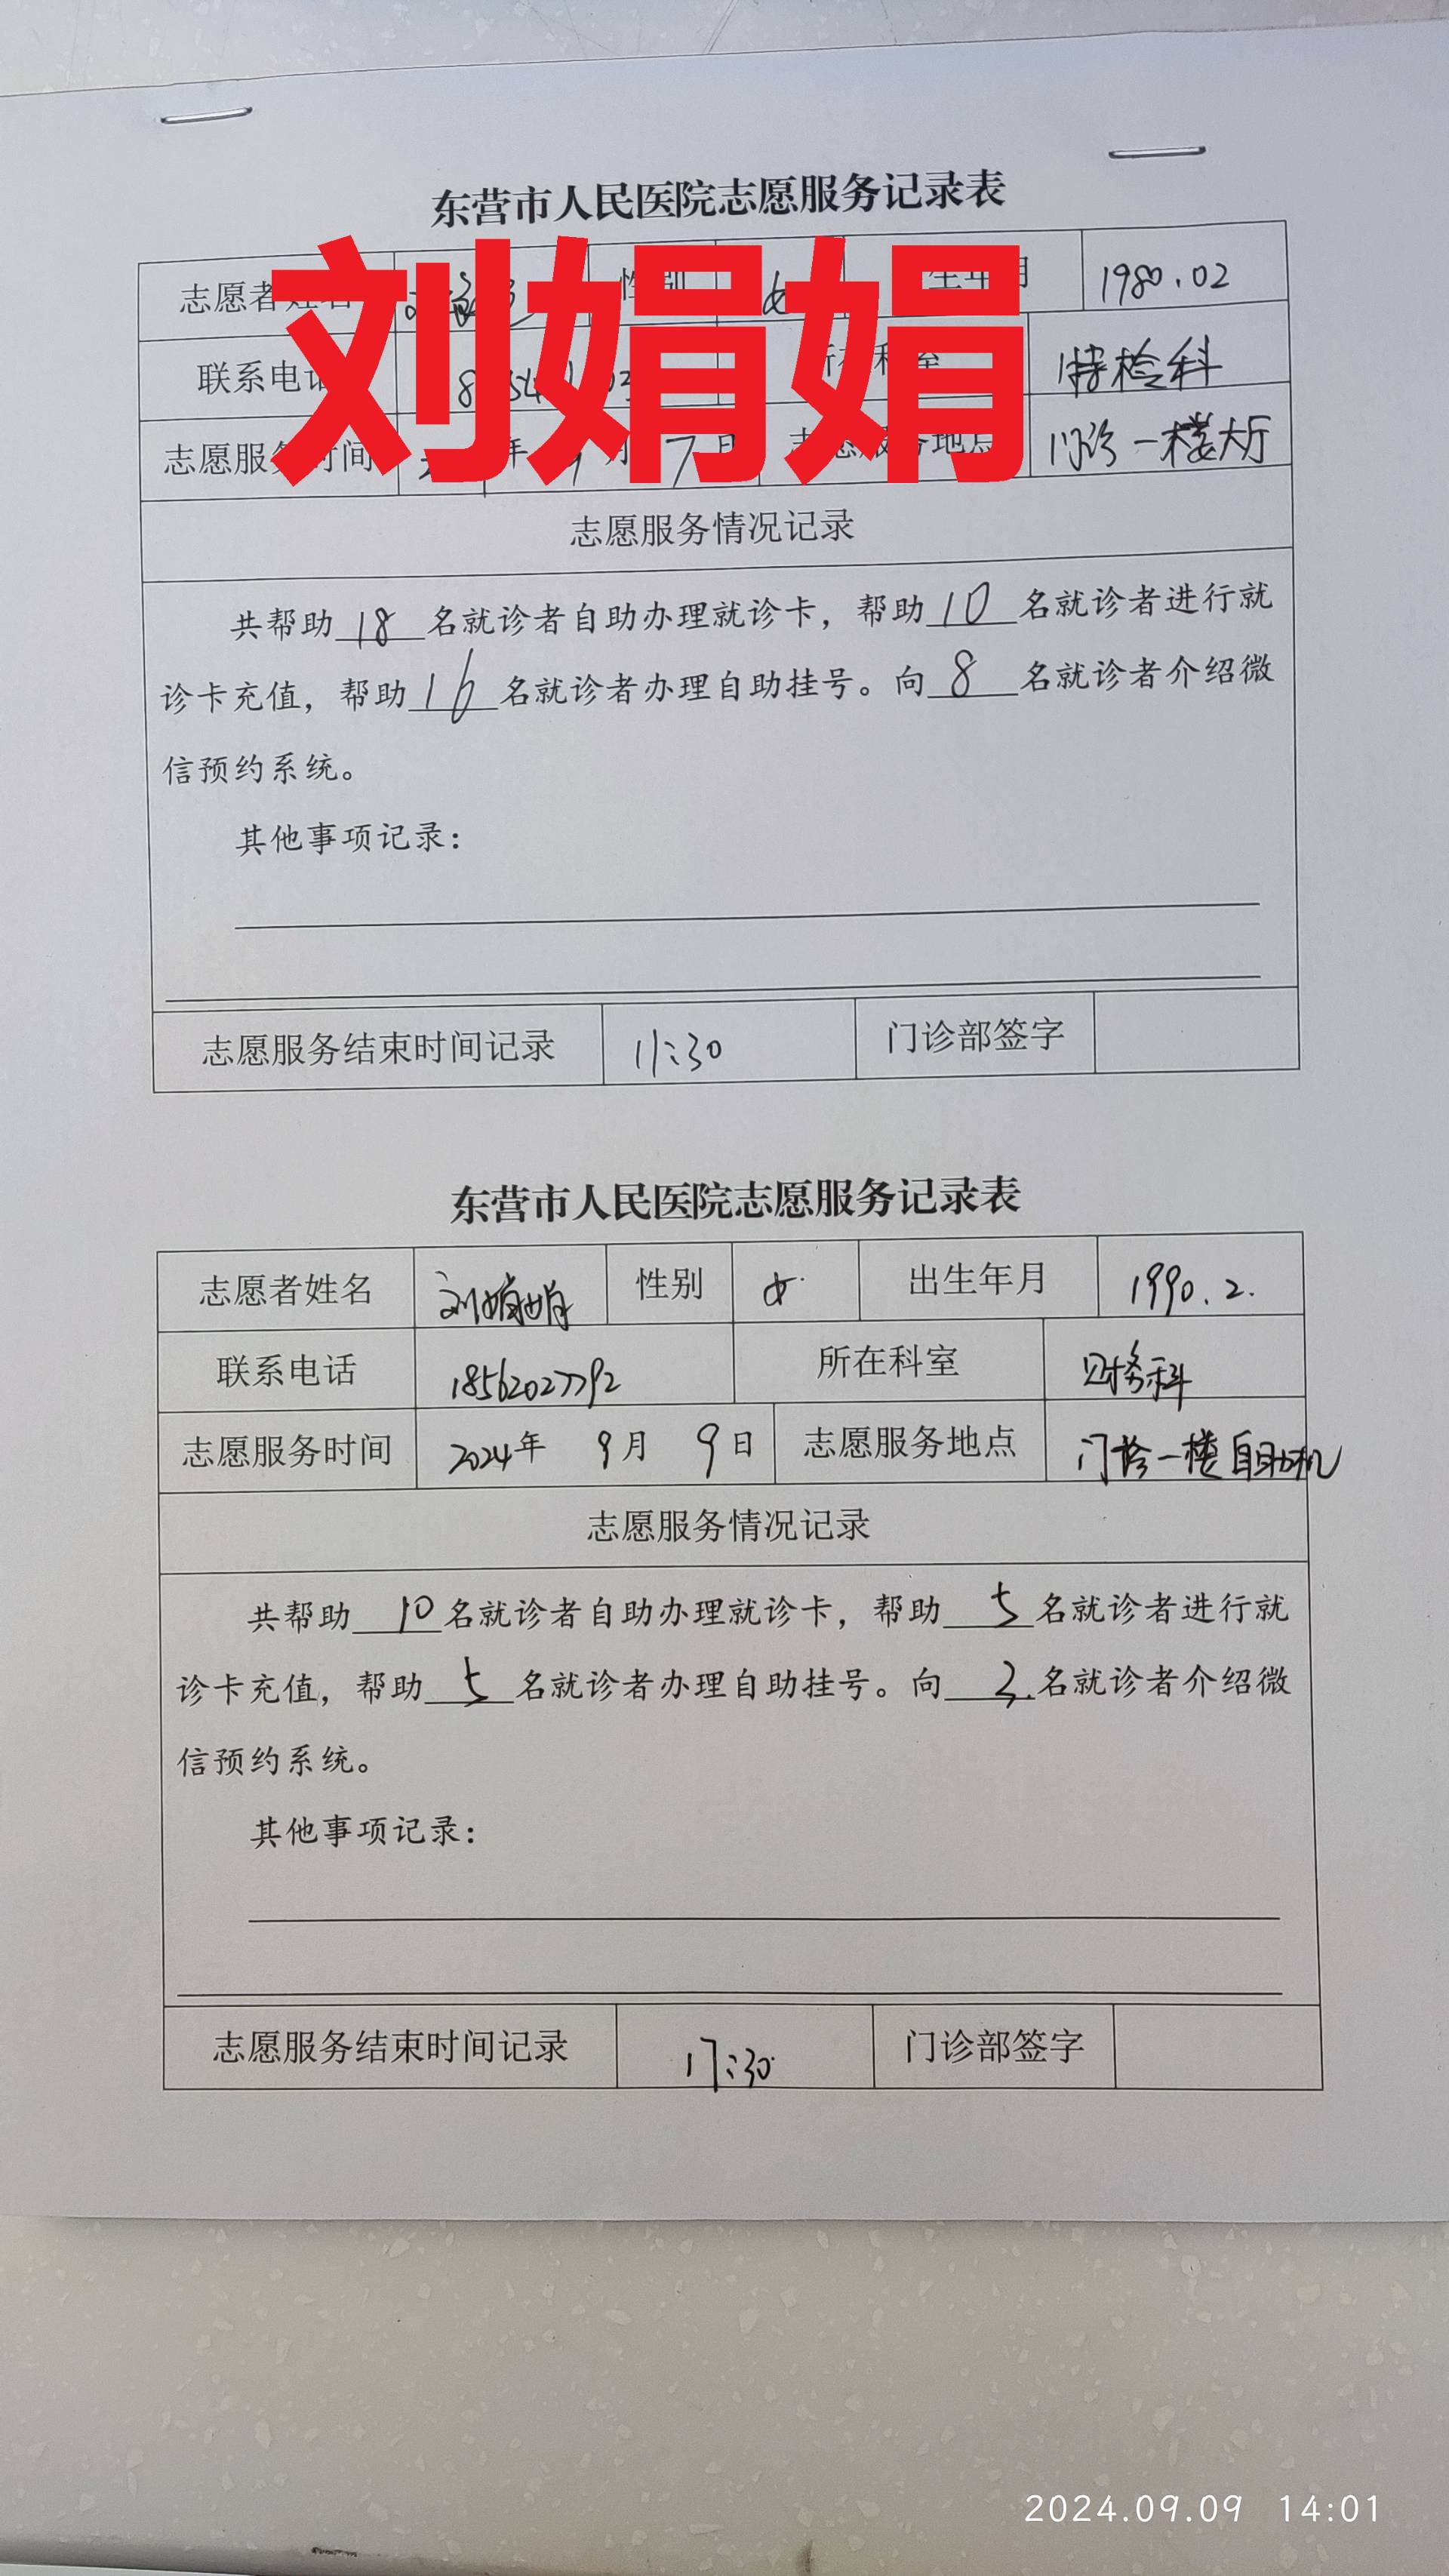 东营市人民医院志愿服务记录表
刘娟娟
志愿者姓名 性别 女 生年月 1980.02
联系电话 所在科室 特检科
志愿服务时间 年 9月 7日 志愿服务地点 门诊一楼大厅
志愿服务情况记录
共帮助18名就诊者自助办理就诊卡，帮助10名就诊者进行就
诊卡充值，帮助16名就诊者办理自助挂号。向8名就诊者介绍微
信预约系统。
其他事项记录：
志愿服务结束时间记录 11:30 门诊部签字
东营市人民医院志愿服务记录表
志愿者姓名 刘娟娟 性别 女 出生年月 1990.2.
联系电话 18562027792 所在科室 财务科
志愿服务时间 2024年 9月 9日 志愿服务地点 门诊一楼自助机
志愿服务情况记录
共帮助10名就诊者自助办理就诊卡，帮助5名就诊者进行就
诊卡充值，帮助5名就诊者办理自助挂号。向2名就诊者介绍微
信预约系统。
其他事项记录：
志愿服务结束时间记录 17:30 门诊部签字
2024.09.09 14:01